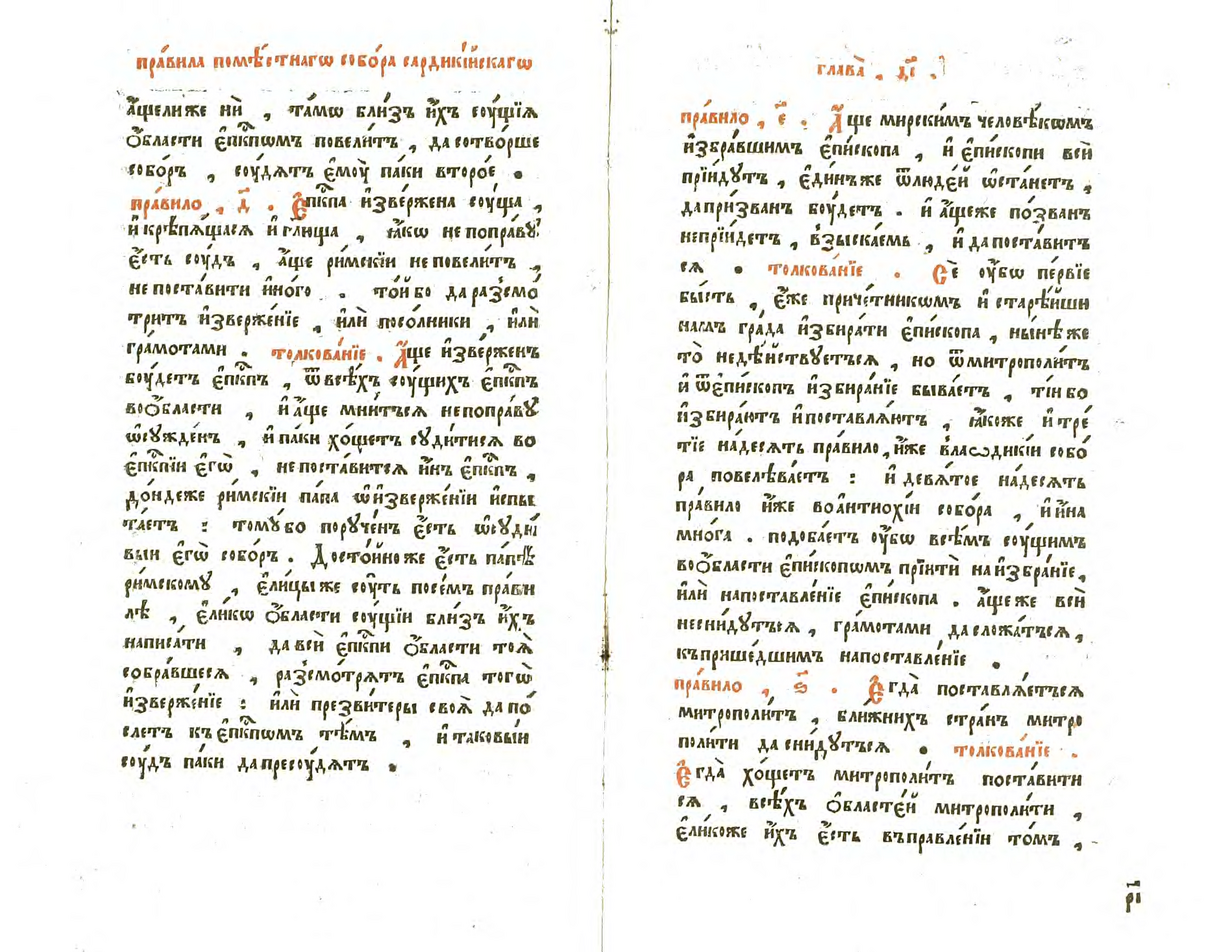 пра́вила помѣ́стнагѡ собо́ра сардикі́йскагѡ
а҆́щелиже нѝ , та́мѡ бли́зъ и҆́хъ соу́щїѧ
ѻ҆́бласти є҆пⷭ҇кпѡмъ повели́тъ , да сотво́рше
собо́ръ , соу́дѧтъ є҆моу̀ па́ки второ́е .
пра́вило , д҃ . Є҆пⷭ҇кпа и҆зве́ржена соу́ща ,
и҆ крѣпѧ́щасѧ и҆ гл҃юща , ꙗ҆́кѡ не попра́вꙋ
є҆́сть соу́дъ , а҆́ще ри́мскїи не повели́тъ ,
не поста́вити и҆но́го . то́и бо да раз̾смо́
тритъ и҆зверже́нїе , и҆лѝ посо́лники , и҆лѝ
гра́мотами . толкова́нїе . А҆́ще и҆зве́рженъ
боу́детъ є҆пⷭ҇кпъ , ѿ всѣ́хъ соу́щихъ є҆пⷭ҇кпъ
во ѻ҆́бласти , и҆ а҆́ще мни́тъсѧ не попра́вꙋ
ѡ҆сꙋжде́нъ , и҆ па́ки хо́щетъ сꙋди́тисѧ во
є҆пⷭ҇кпїи є҆гѡ̀ , не поста́витсѧ и҆́нъ є҆пⷭ҇кпъ ,
до́ндеже ри́мскїи па́па ѡ҆ и҆зверже́нїи и҆спы
та́етъ : томꙋ́ бо порꙋче́нъ є҆́сть ѡ҆сꙋди́
выи є҆гѡ̀ собо́ръ . Досто́йно же є҆́сть па́пѣ
ри́мскомꙋ , є҆ли́цы же соу́ть посе́мъ пра́ви
лѣ , є҆ли́кѡ ѻ҆́бласти соу́щїи бли́зъ и҆́хъ
написа́ти , да всѝ є҆пⷭ҇кпи ѻ҆́бласти тоѧ̀
собра́вшесѧ , раз̾смо́трѧтъ є҆пⷭ҇кпа тогѡ̀
и҆зверже́нїе : и҆лѝ презви́теры своѧ̀ да по́
слетъ къ є҆пⷭ҇кпѡмъ тѣ́мъ , и҆ таковы́и
соу́дъ па́ки да пресоу́дѧтъ .
глава̀ . д҃і .
пра́вило , е҃ . А҆́ще мирски́мъ человѣ́кѡмъ
и҆збра́вшимъ є҆пи́скопа , и҆ є҆пи́скопи всѝ
прїи́дꙋтъ , є҆ди́нъ же ѿ люде́й ѡ҆ста́нетъ ,
да при́званъ боу́детъ . и҆ а҆́ще же по́званъ
не прїи́детъ , в̾зыска́емь , и҆ да поста́витъ
сѧ . толкова́нїе . Сѐ ᲂу҆́бѡ пе́рвїе
бы́сть , є҆́же приче́тникѡмъ и҆ старѣ́йши
намъ гра́да и҆збира́ти є҆пи́скопа , ны́нѣ же
то̀ не дѣ́йствꙋетьсѧ , но ѿ митрополи́тъ
и҆ ѿ є҆пи́скопъ и҆збира́нїе быва́етъ , ті́и бо
и҆збира́ютъ и҆ поставлѧ́ютъ , ꙗ҆́коже и҆ тре́
тїе на́десѧть пра́вило , и҆́же в̾лаѡдикі́и собо́
ра повелѣва́етъ : и҆ девѧ́тое на́десѧть
пра́вило и҆́же во антиохі́и собо́ра , и҆ и҆́на
мно́га . подоба́етъ ᲂу҆́бѡ всѣ́мъ соу́щимъ
во ѻ҆́бласти є҆пи́скопѡмъ прїитѝ на и҆збра́нїе ,
и҆лѝ на поставле́нїе є҆пи́скопа . а҆́ще же всѝ
не сни́дꙋтьсѧ , гра́мотами да сло́жатъсѧ ,
къ прише́дшимъ на поставле́нїе .
пра́вило , ѕ҃ . Є҆гда̀ поставлѧ́етьсѧ
митрополи́тъ , бли́жнихъ стра́нъ митро
поли́ти да сни́дꙋтьсѧ . толкова́нїе .
Є҆гда̀ хо́щетъ митрополи́тъ поста́вити
сѧ , всѣ́хъ ѻ҆бласте́й митрополи́ти ,
є҆ли́коже и҆́хъ є҆́сть въ правле́нїи то́мъ ,
р҃і